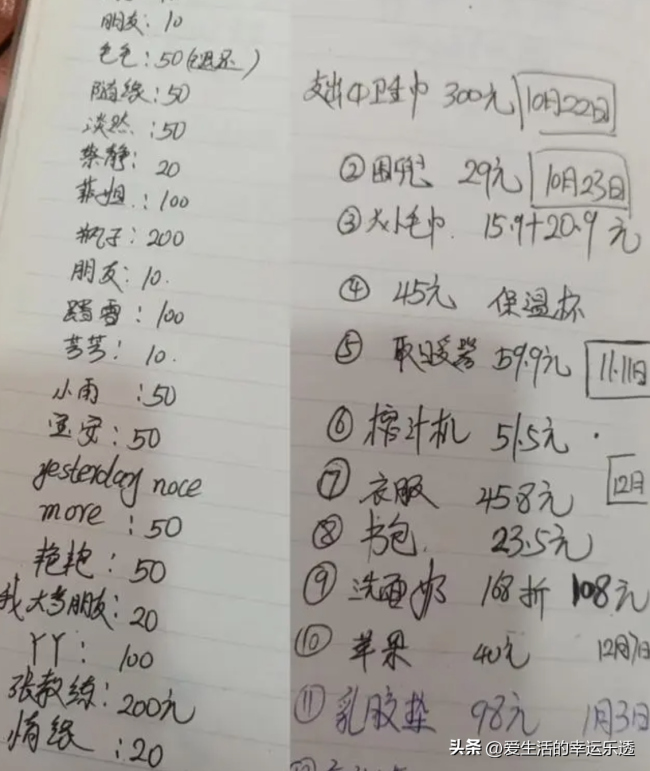 朋友：10
色色：50（已退还）
随缘：50
淡然：50
蔡静：20
菲姐：100
瓶子：200
朋友：10.
踏雪：100
芳芳：10.
小雨：50
宝安：50
yesterday noce
more：50
艳艳：50
我大李朋友：20
丫丫：100
张教练：200元
情缘：20
支出①卫生巾 300元 10月22日
② 围兜 29元 10月23日
③ 大小毛巾. 15.9+20.9元
④ 45元 保温杯
⑤ 取暖器 59.9元 11.11日
⑥ 榨汁机 51.5元
⑦ 衣服 458元 12月
⑧ 书包. 23.5元
⑨ 洗面奶 168折 108元
⑩ 苹果 40元 12月7日
⑪ 乳胶垫 98元 1月3日
头条 @爱生活的幸运乐透